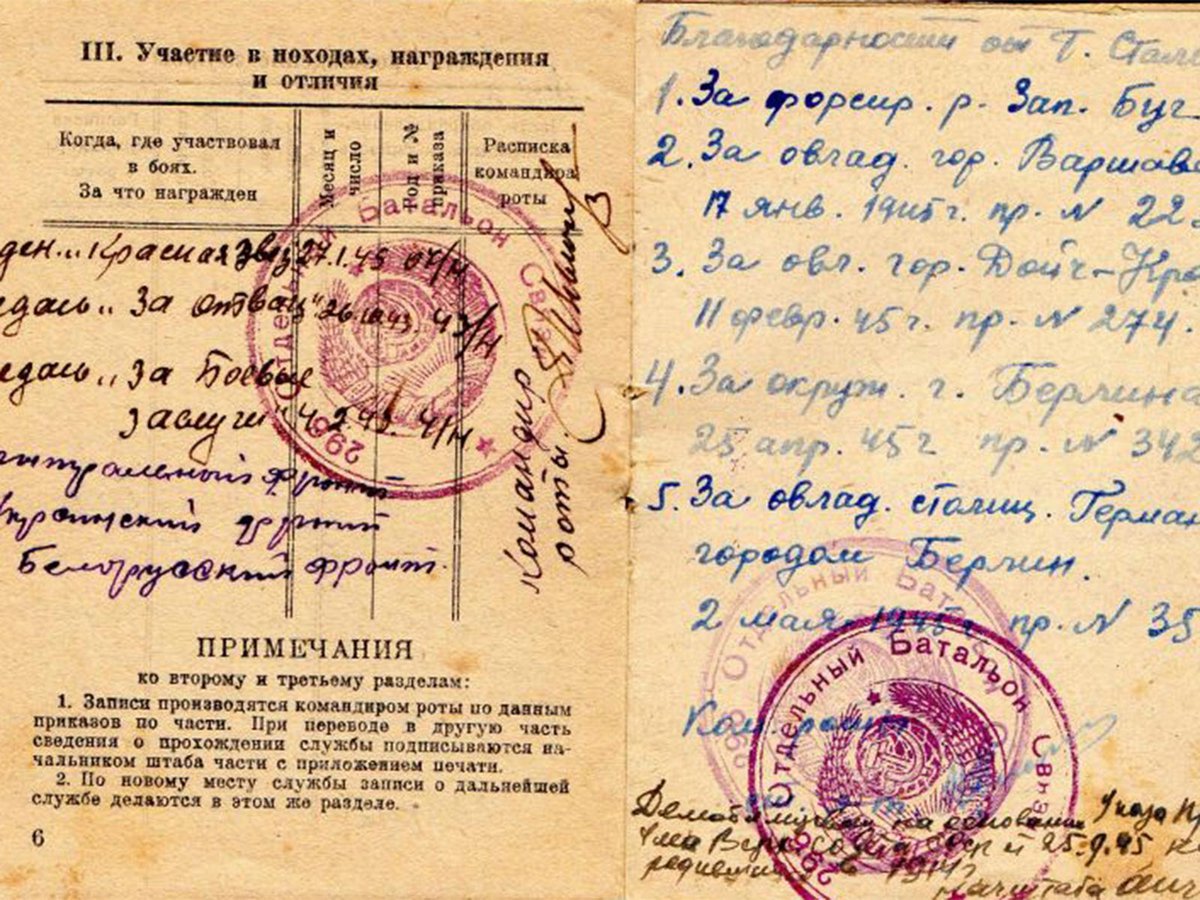 III. Участие в походах, награждения
и отличия
Когда, где участвовал
в боях.
За что награжден
Месяц и
число
Род и №
приказа
Расписка
командира
роты
ден. „Красная звез 27.1.45 04/н
едаль „За отвагу" 43/н
едаль „За Боевые
заслуги" 4.2.43. 4/н
фронт
краинский фронт
Белорусский фронт.
Командир
роты.
296 Отдельный Батальон Связи
ПРИМЕЧАНИЯ
ко второму и третьему разделам:
1. Записи производятся командиром роты по данным
приказов по части. При переводе в другую часть
сведения о прохождении службы подписываются на-
чальником штаба части с приложением печати.
2. По новому месту службы записи о дальнейшей
службе делаются в этом же разделе.
6
Благодарности от Т. Стали
1. За форсир. р. Зап. Буг
2. За овлад. гор. Варшав
17 янв. 1945 г. пр. N 22
3. За овл. гор. Дойч-Кро
11 февр. 45 г. пр. N 274.
4. За окруж. г. Берлина
25 апр. 45 г пр. N 342
5. За овлад. столиц. Герман
городом Берлин.
2 мая 1945 г. пр. N 35
Ком. роты
296 Отдельный Батальон Связи
296 Отдельный Батальон С
на основании Указа Пр
СССР 25.9.45
Нач штаба